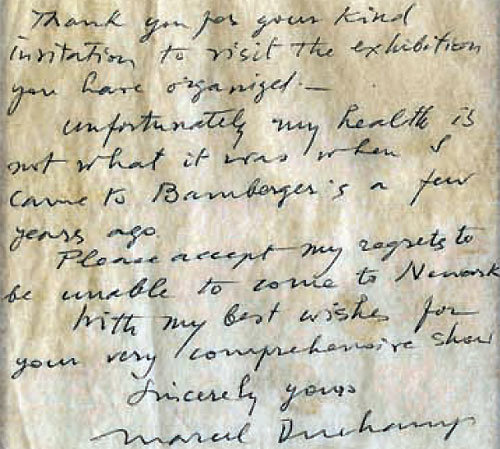 Thank you for your kind
invitation to visit the exhibition
you have organized. —
Unfortunately my health is
not what it was when I
came to Bamberger's a few
years ago
Please accept my regrets to
be unable to come to Newark
With my best wishes for
your very comprehensive show
Sincerely yours
Marcel Duchamp